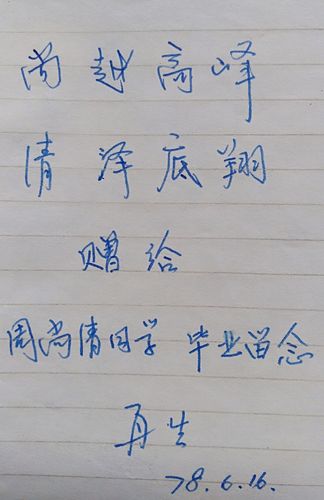 尚越高峰
清泽底翔
赠给
周尚清同学 毕业留念
再生
78.6.16.